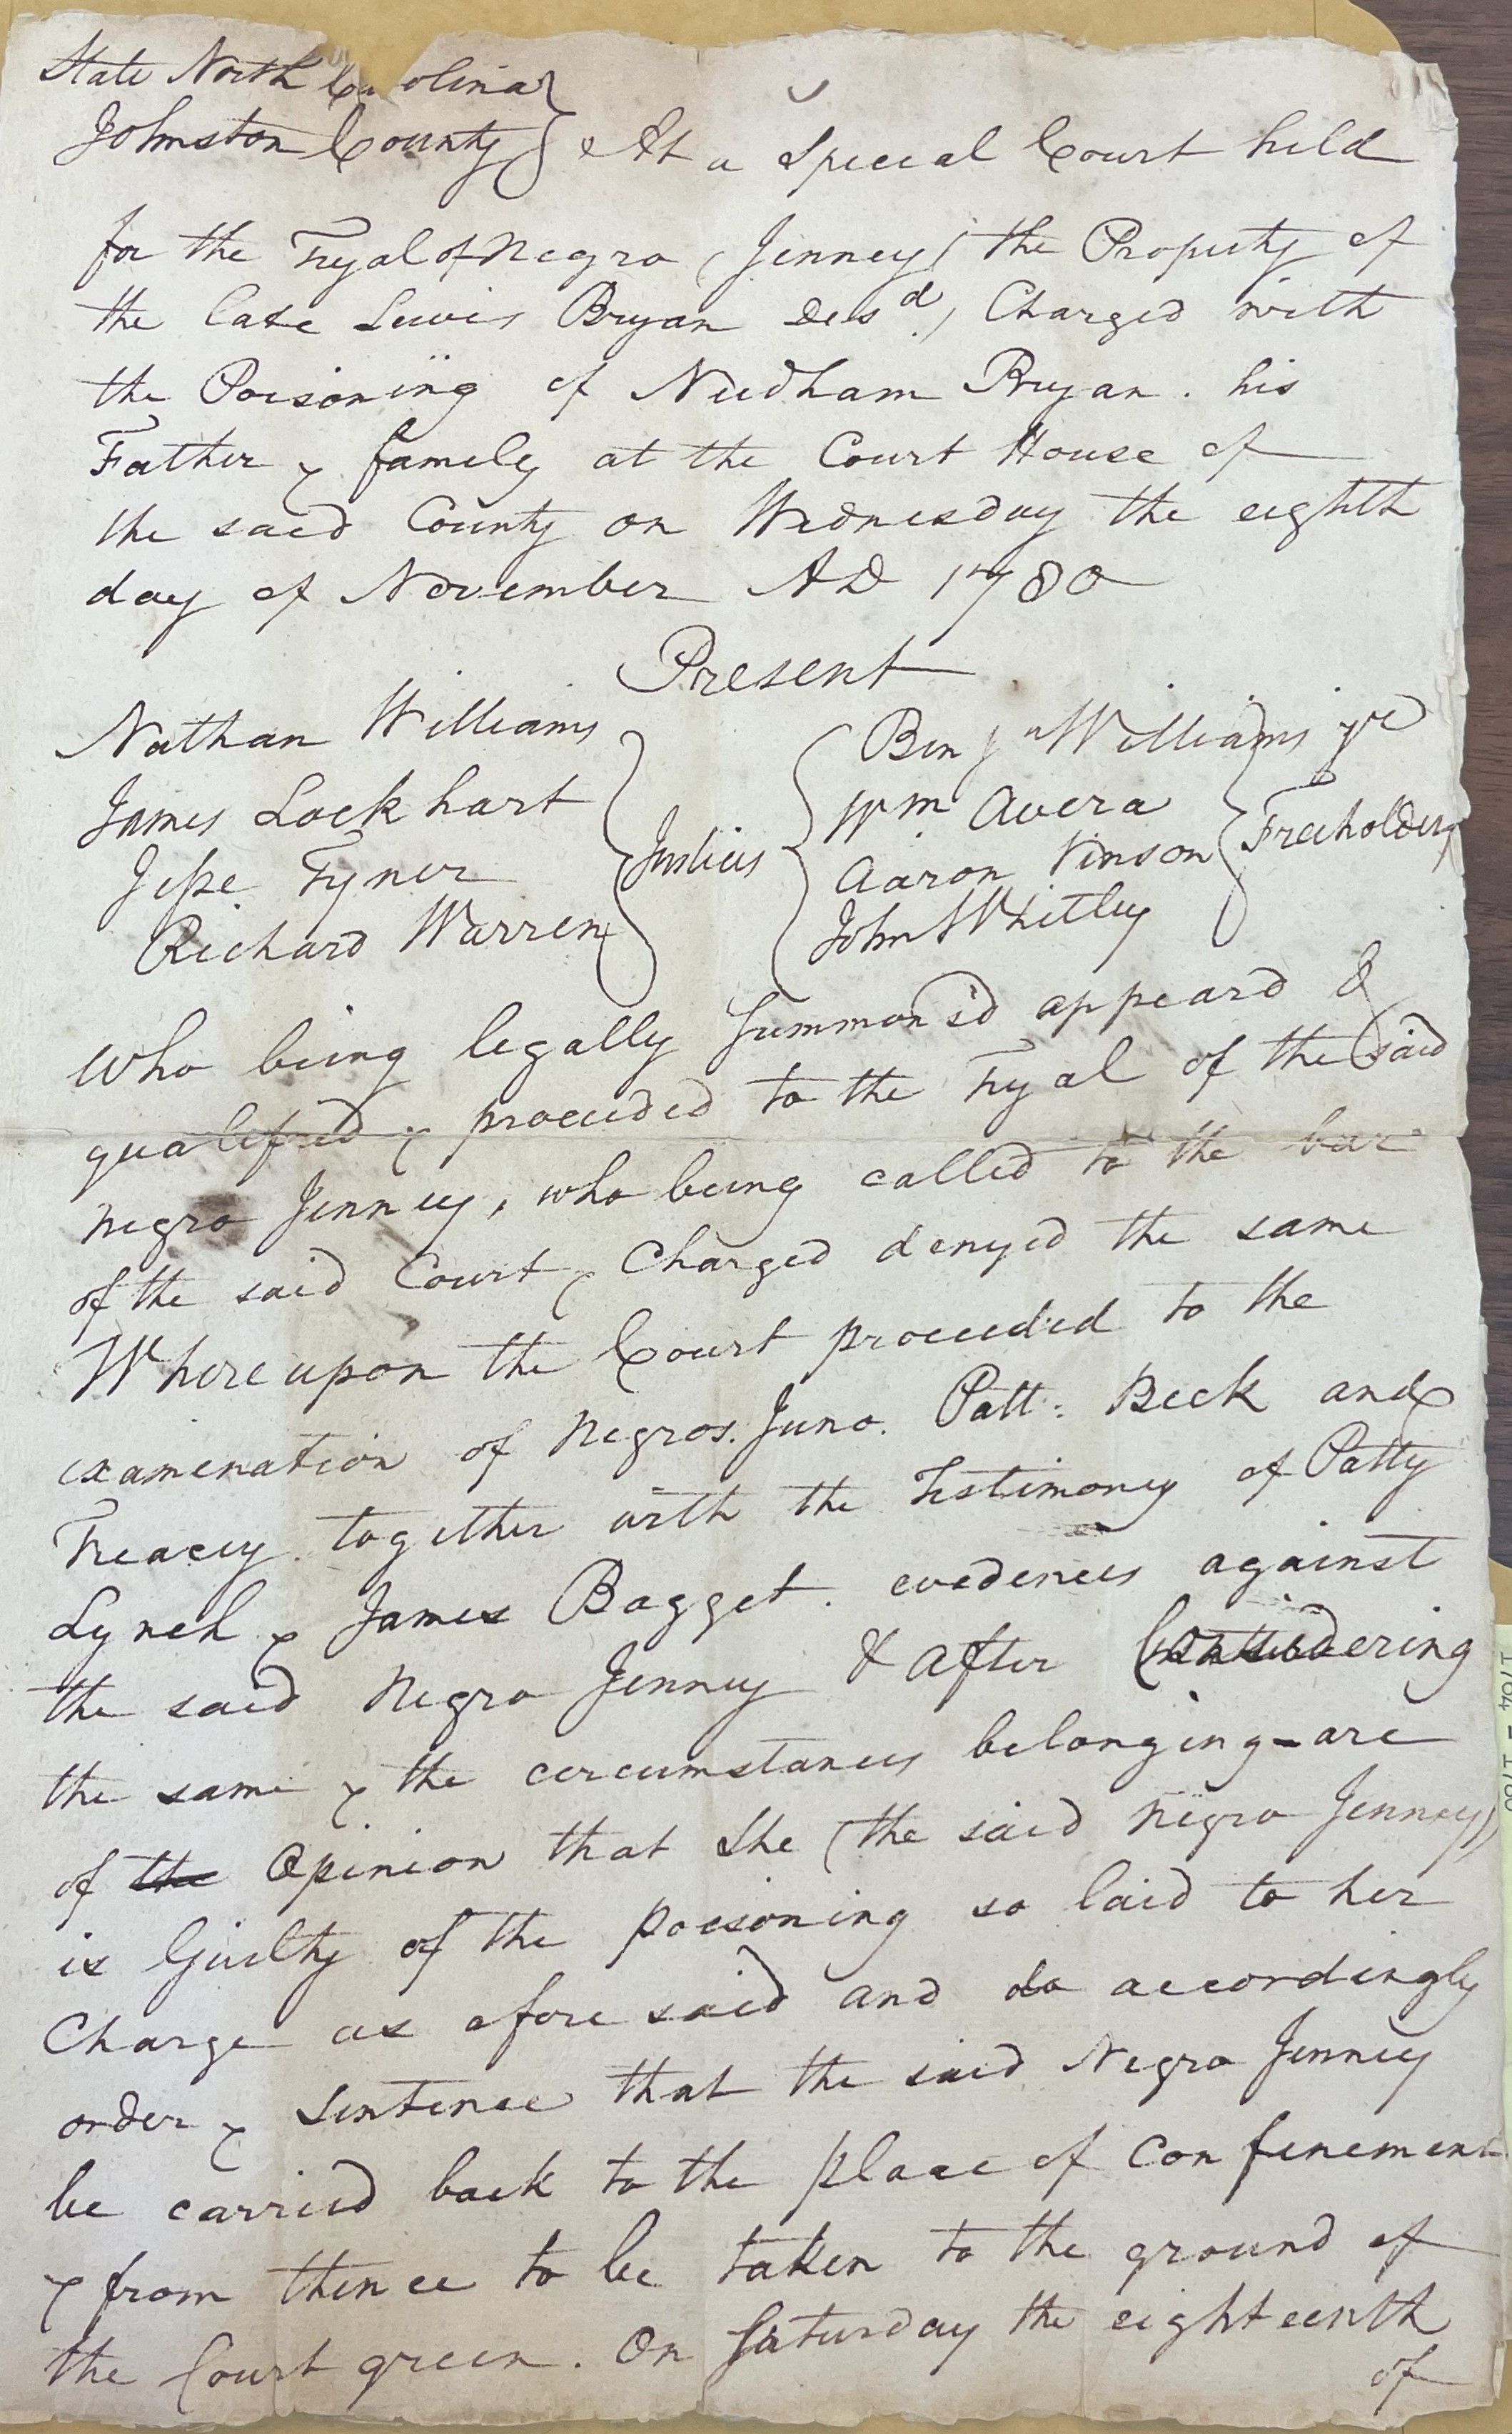 State North Carolina
Johnston County At a Special Court held
for the Tryal of Negro (Jenney) the Property of
the late Lewis Bryan Desd, Charged with
the Poisoning of Needham Bryan. his
Father & family at the Court House of
the said County on Wednesday the eighth
day of November AD 1780
Present
Nathan Williams
James Lockhart
Jesse Tyner
Richard Warren
Justices
Benja Williams jr
Wm Avera
Aaron Vinson
John Whitley
Freeholders
Who being legally Summons'd appeard &
qualified & proceeded to the Tryal of the said
Negro Jenney, who being called to the bar
of the said Court & Charged denyed the same
Whereupon the Court proceeded to the
examenation of Negros. Juno. Patt: Beck and
Treacey. together with the Testimony of Patty
Lynch & James Bagget. evedences against
the said Negro Jenney & after Considering
the same & the circumstances belonging - are
of the Opinion that She (the said Negro Jenney)
is Guilty of the poisoning so laid to her
Charge as afore said and do accordingly
order & Sentence that the said Negro Jenney
be carried back to the place of Confinement
& from thence to be taken to the ground of
the Court green. On Saturday the eighteenth
of
1764 - 1780